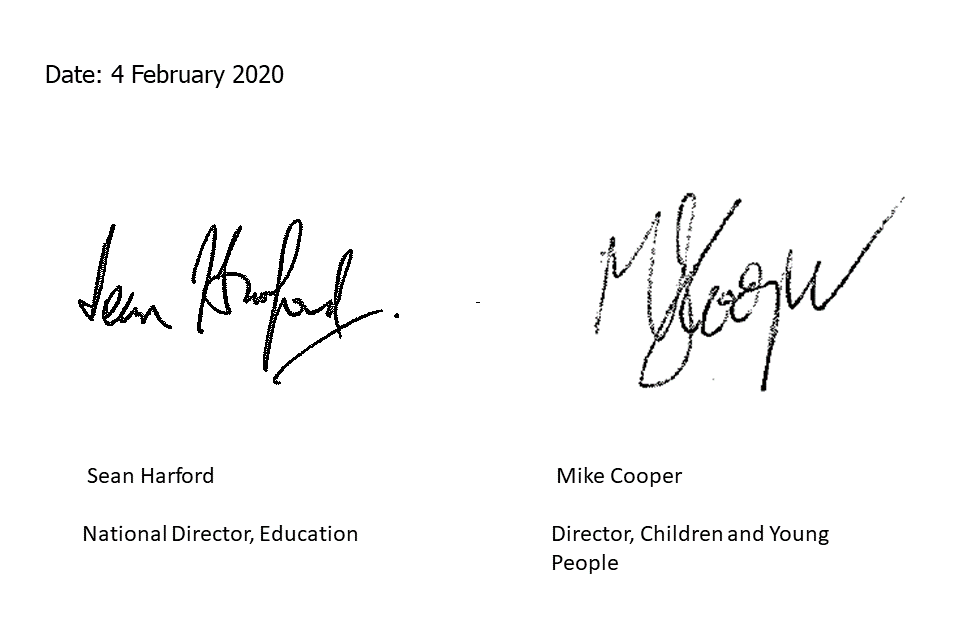 Date: 4 February 2020
Sean Harford.
M Cooper
Sean Harford
Mike Cooper
National Director, Education
Director, Children and Young
People